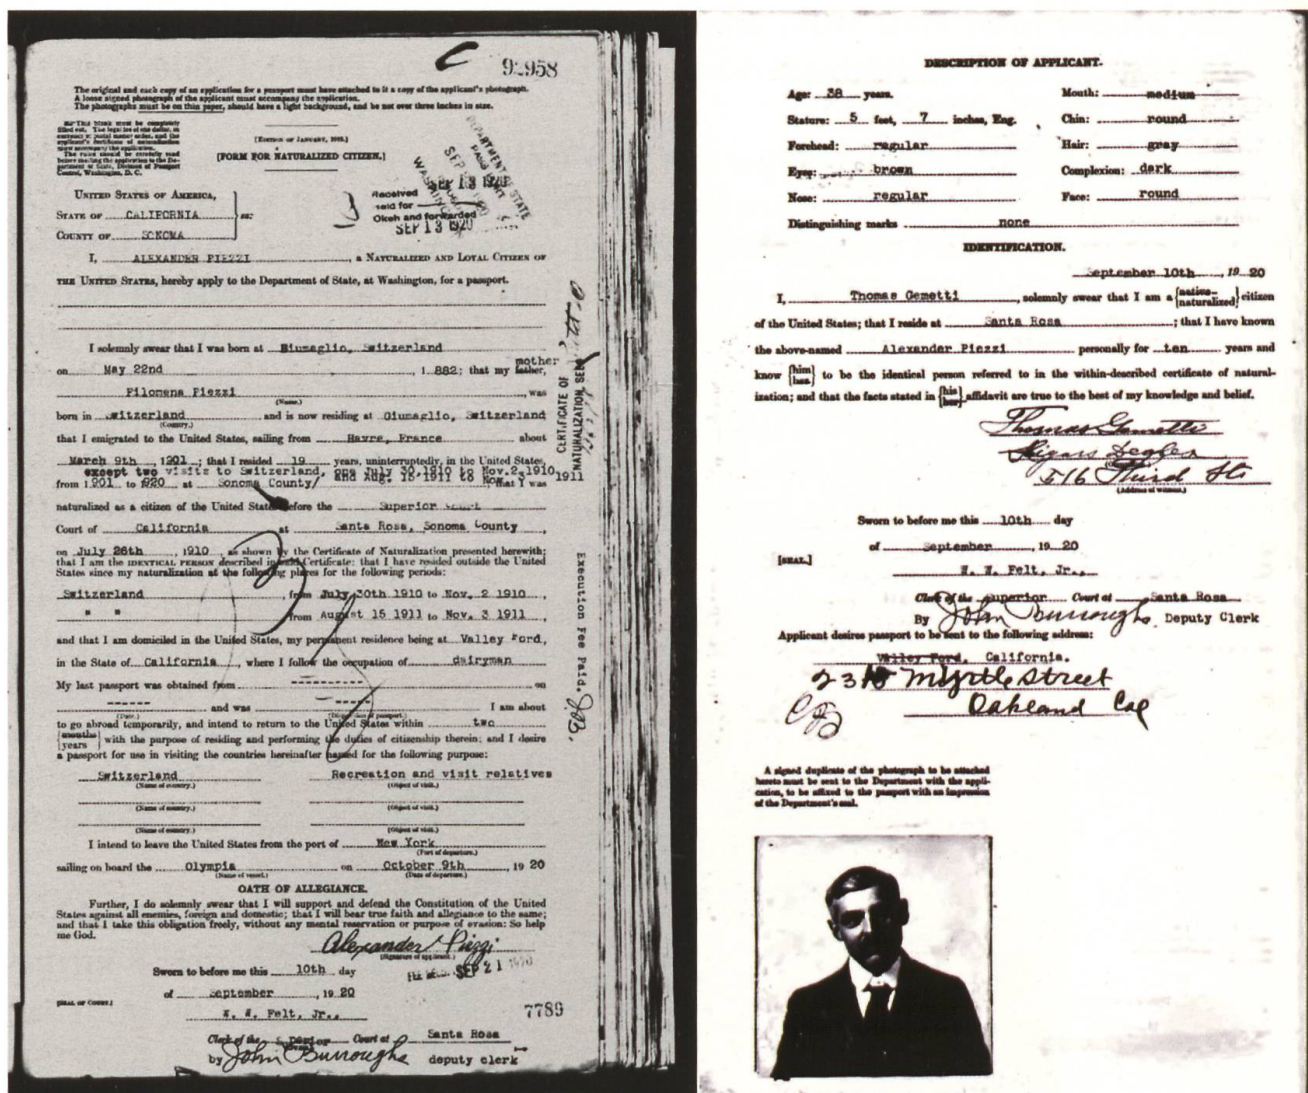 C
92958
The original and each copy of an application for a passport must have attached to it a copy of the applicant's photograph.
A loose signed photograph of the applicant must accompany the application.
The photographs must be on thin paper, should have a light background, and be not over three inches in size.
This blank must be completely
filled out. The legal fee of one dollar, in
currency or postal money order, and the
applicant's certificate of naturalization
must accompany the application.
The rules should be carefully read
before mailing the application to the De-
partment of State, Division of Passport
Control, Washington, D. C.
[EDITION OF JANUARY, 1920.]
[FORM FOR NATURALIZED CITIZEN.]
DEPARTMENT OF STATE
SEP 13 1920
Received
Held for
Okeh and forwarded
SEP 13 1920
UNITED STATES OF AMERICA,
STATE OF CALIFORNIA
ss:
COUNTY OF SONOMA
I, ALEXANDER PIEZZI, a NATURALIZED AND LOYAL CITIZEN OF
THE UNITED STATES, hereby apply to the Department of State, at Washington, for a passport.
I solemnly swear that I was born at Giumaglio, Switzerland
on May 22nd, 1 882; that my father, mother
Filomena Piezzi, was
(Name.)
born in Switzerland and is now residing at Giumaglio, Switzerland
(Country.)
that I emigrated to the United States, sailing from Havre, France about
March 9th, 1901; that I resided 19 years, uninterruptedly, in the United States,
except two visits to Switzerland, one July 30,1910 to Nov.2,1910,
and Aug. 15 1911 to Nov. 3 1911
from 1901 to 1920 at Sonoma County/ that I was
naturalized as a citizen of the United States before the Superior Court
Court of California at Santa Rosa, Sonoma County,
on July 26th, 1910, as shown by the Certificate of Naturalization presented herewith;
that I am the IDENTICAL PERSON described in said Certificate; that I have resided outside the United
States since my naturalization at the following places for the following periods:
Switzerland, from July 30th 1910 to Nov. 2 1910
" ", from August 15 1911 to Nov. 3 1911,
and that I am domiciled in the United States, my permanent residence being at Valley Ford,
in the State of California, where I follow the occupation of dairyman
My last passport was obtained from ------- on
------ and was ------- I am about
(Date.) (Disposition of passport.)
to go abroad temporarily, and intend to return to the United States within two
{months years} with the purpose of residing and performing the duties of citizenship therein; and I desire
a passport for use in visiting the countries hereinafter named for the following purpose:
Switzerland Recreation and visit relatives
(Name of country.) (Object of visit.)
(Name of country.) (Object of visit.)
(Name of country.) (Object of visit.)
I intend to leave the United States from the port of New York
(Port of departure.)
sailing on board the Olympia on October 9th, 19 20
(Name of vessel.) (Date of departure.)
OATH OF ALLEGIANCE.
Further, I do solemnly swear that I will support and defend the Constitution of the United
States against all enemies, foreign and domestic; that I will bear true faith and allegiance to the same;
and that I take this obligation freely, without any mental reservation or purpose of evasion: So help
me God.
Alexander Piezzi
(Signature of applicant.)
SEP 21 1920
Sworn to before me this 10th day
of September, 19 20
[SEAL OF COURT.]
W. W. Felt, Jr.,
7789
Clerk of the Superior Court at Santa Rosa
by John Burroughs deputy clerk
CERTIFICATE OF
NATURALIZATION SEEN
Execution Fee Paid.
DESCRIPTION OF APPLICANT.
Age: 38 years. Mouth: medium
Stature: 5 feet, 7 inches, Eng. Chin: round
Forehead: regular Hair: gray
Eyes: brown Complexion: dark
Nose: regular Face: round
Distinguishing marks none
IDENTIFICATION.
September 10th, 19 20
I, Thomas Gemetti, solemnly swear that I am a {native naturalized} citizen
of the United States; that I reside at Santa Rosa; that I have known
the above-named Alexander Piezzi personally for ten years and
know {him her} to be the identical person referred to in the within-described certificate of natural-
ization; and that the facts stated in {his her} affidavit are true to the best of my knowledge and belief.
Thomas Gemetti
516 Third St
(Address of witness.)
Sworn to before me this 10th day
of September, 19 20
[SEAL.]
W. W. Felt, Jr.,
Clerk of the Superior Court at Santa Rosa
By John Burroughs, Deputy Clerk
Applicant desires passport to be sent to the following address:
Valley Ford, California.
Myrtle Street
Oakland Cal
A signed duplicate of the photograph to be attached
hereto must be sent to the Department with the appli-
cation, to be affixed to the passport with an impression
of the Department's seal.